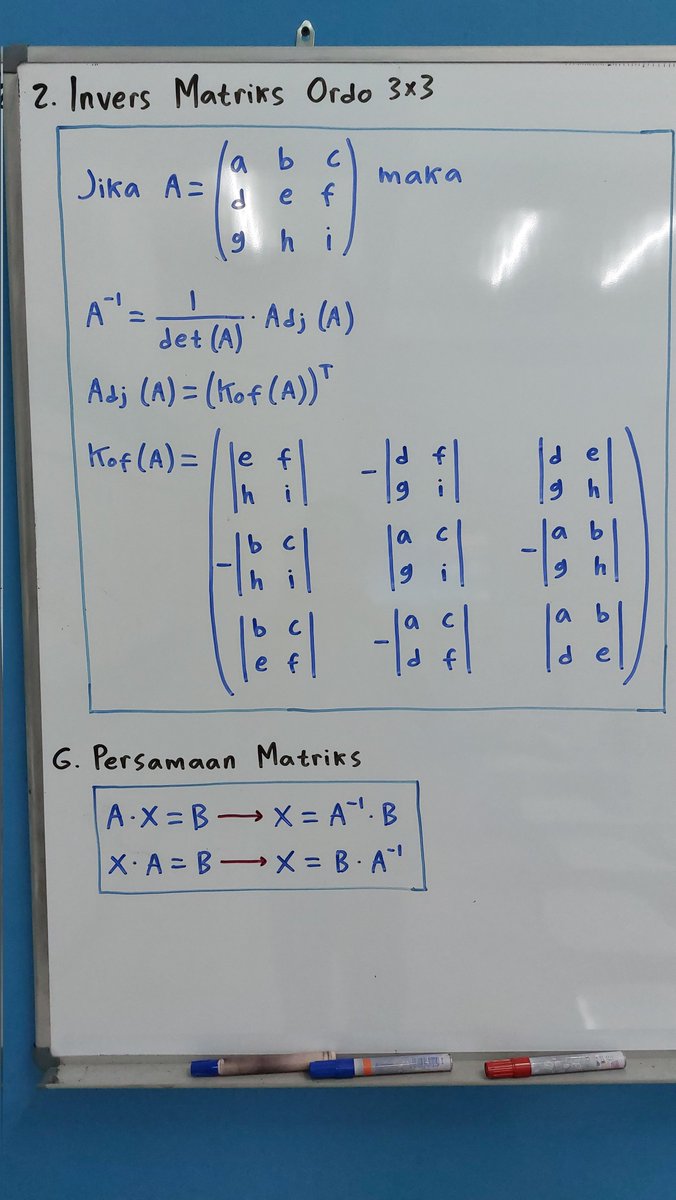 2. Invers Matriks Ordo 3×3
Jika A = (a b c
d e f
g h i) maka
A⁻¹ = 1/det (A) · Adj (A)
Adj (A) = (Kof (A))ᵀ
Kof (A) = (|e f| -|d f| |d e|
|h i| |g i| |g h|
-|b c| |a c| -|a b|
|h i| |g i| |g h|
|b c| -|a c| |a b|
|e f| |d f| |d e|)
G. Persamaan Matriks
A·X = B → X = A⁻¹·B
X·A = B → X = B·A⁻¹